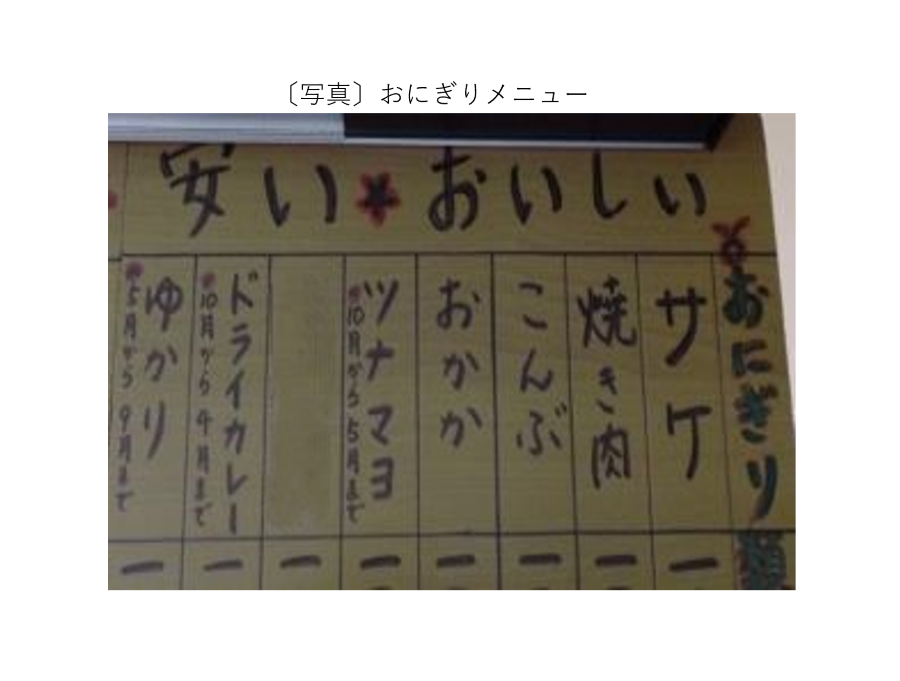 〔写真〕おにぎりメニュー
安い おいしい
おにぎり類
サケ
焼き肉
こんぶ
おかか
ツナマヨ
※10月から5月まで
ドライカレー
※10月から4月まで
ゆかり
※5月から9月まで
一
一
一
一
一
一
一